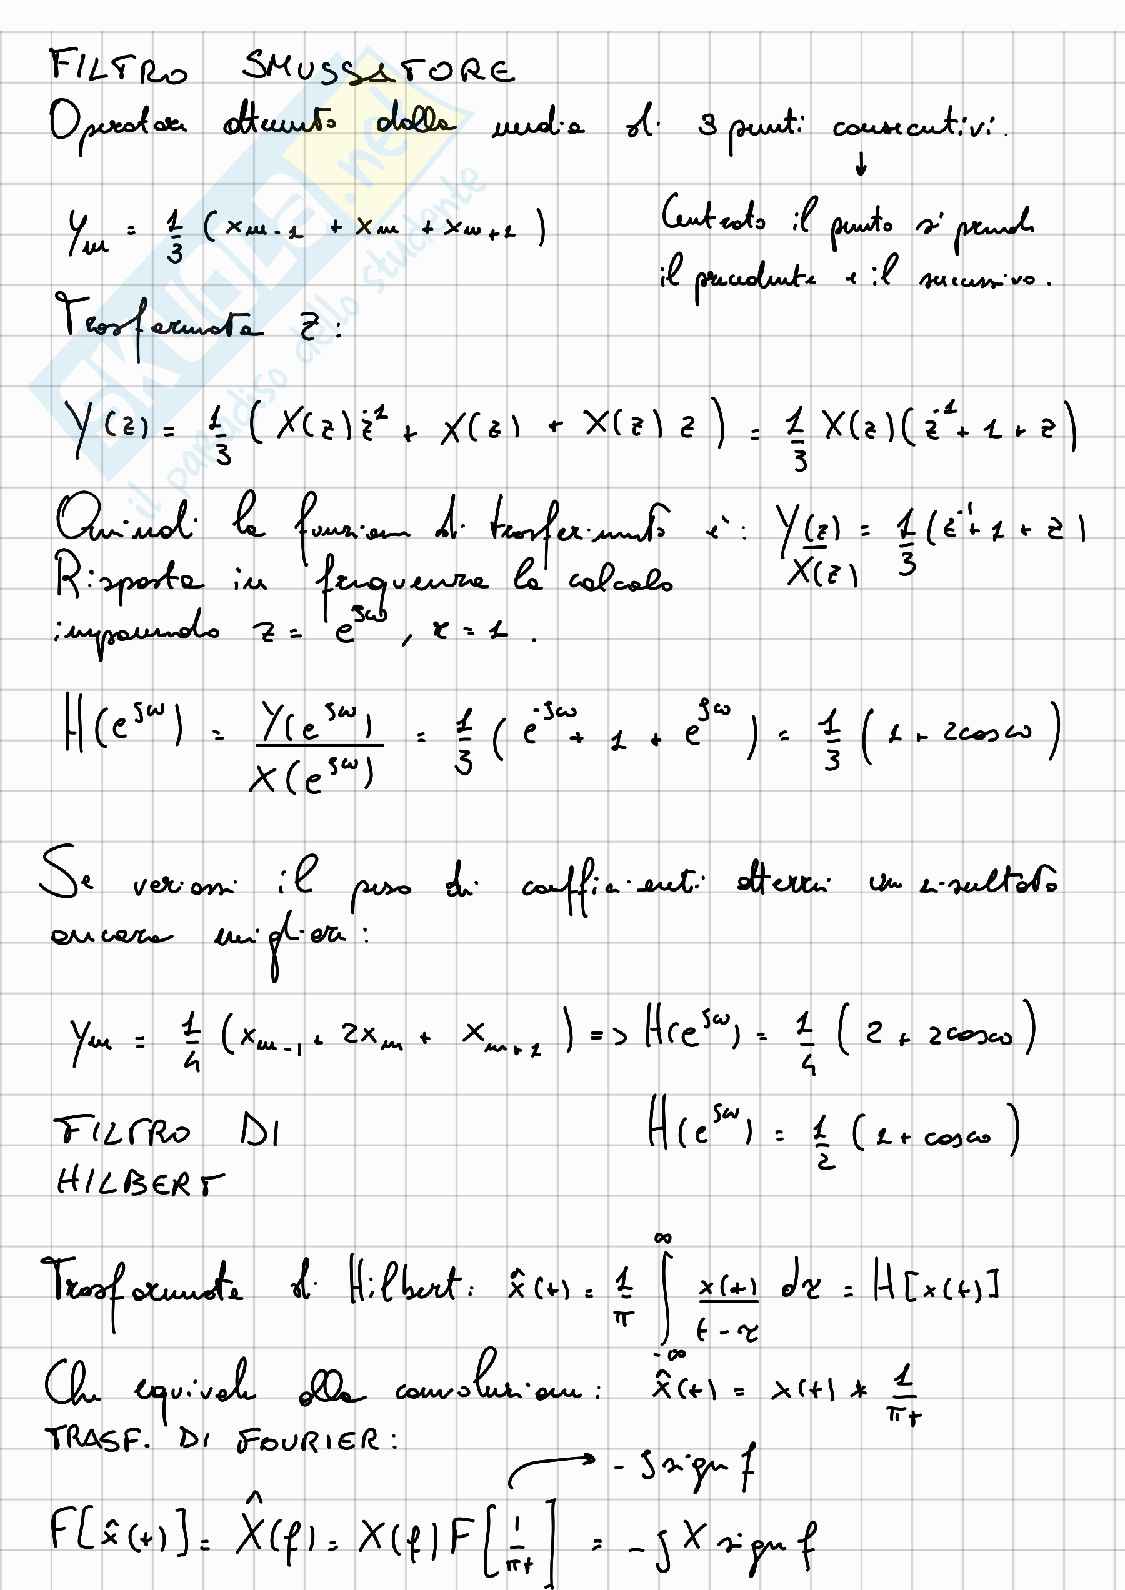 FILTRO SMUSSATORE
Operatore ottenuto dalla media di 3 punti consecutivi.
↓
Yₙ = 1/3 (xₙ₋₁ + xₙ + xₙ₊₁)
Centrato il punto si prende
il precedente e il successivo.
Trasformata z:
Y(z) = 1/3 (X(z)z⁻¹ + X(z) + X(z) z) = 1/3 X(z)(z⁻¹ + 1 + z)
Quindi la funzione di trasferimento è: Y(z)/X(z) = 1/3 (z⁻¹ + 1 + z)
Risposta in frequenza la calcolo
imponendo z = e^jω, r = 1.
H(e^jω) = Y(e^jω)/X(e^jω) = 1/3 (e^-jω + 1 + e^jω) = 1/3 (1 + 2cosω)
Se variassi il peso di coefficienti otterrei un risultato
ancora migliore:
Yₙ = 1/4 (xₙ₋₁ + 2xₙ + xₙ₊₁) => H(e^jω) = 1/4 (2 + 2cosω)
H(e^jω) = 1/2 (1 + cosω)
FILTRO DI
HILBERT
Trasformata di Hilbert: x̂(t) = 1/π ∫_-∞^∞ x(t)/(t-τ) dτ = H[x(t)]
Che equivale alla convoluzione: x̂(t) = x(t) * 1/πt
TRASF. DI FOURIER:
→ - j sign f
F[x̂(t)] = X̂(f) = X(f) F[1/πt] = - j X sign f
skuola.net
il paradiso dello studente